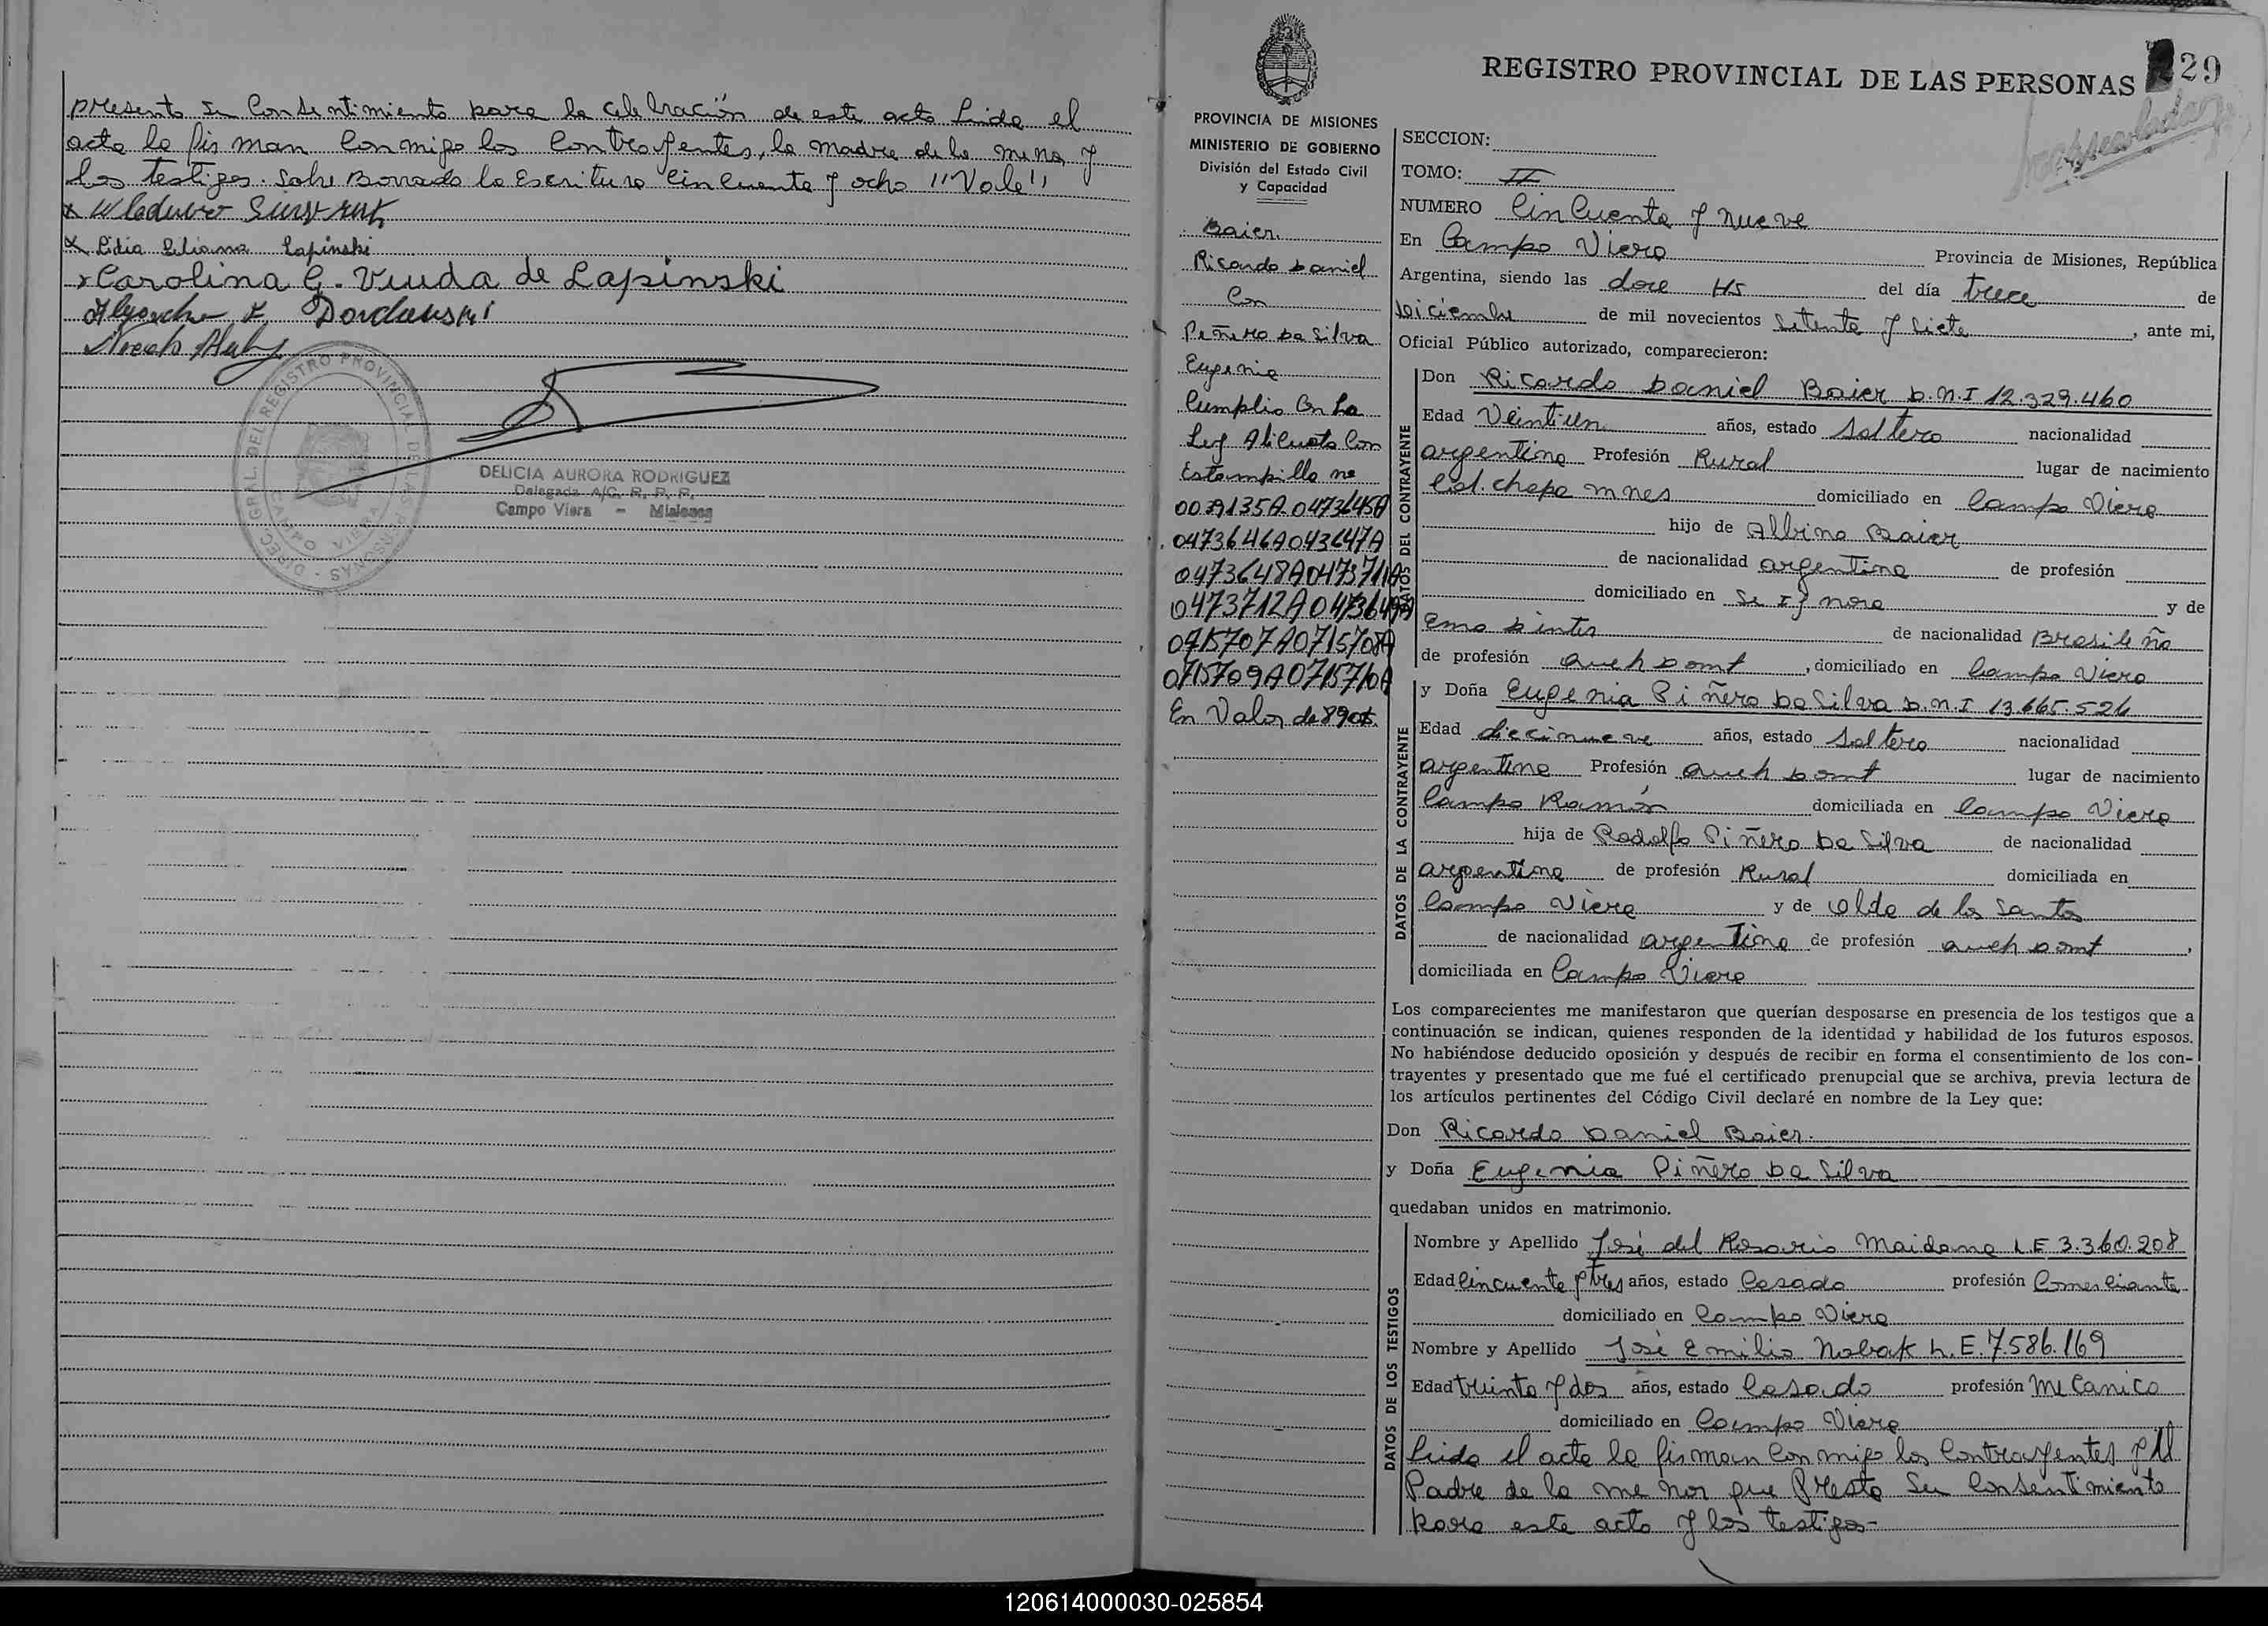 presento su Consentimiento para la celebración de este acto Leida el
acta la firman Conmigo los Contrayentes, la madre de la menor y
los testigos. Sobre Borrado la Escritura Cincuenta y ocho "Vale"
x
x Lidia Liliana Lapinski
x Carolina G. Viuda de Lapinski
DIREC. GRAL. DEL REGISTRO PROVINCIAL DE LAS PERSONAS
CAMPO VIERA
DELICIA AURORA RODRIGUEZ
Delegada A/C. R. P. P.
Campo Viera - Misiones
REGISTRO PROVINCIAL DE LAS PERSONAS
29
PROVINCIA DE MISIONES
MINISTERIO DE GOBIERNO
División del Estado Civil
y Capacidad
Baier
Ricardo Daniel
Con
Piñero Da Silva
Eugenia
Cumplio Con La
Ley Alicuota Con
Estampilla no
0039135A.0473645A
0473646A043647A
0473648A0473711A
0473712A0473649A
0715707A0715708A
0715709A0715710A
En Valor de 890$.
SECCION:
TOMO: II
NUMERO Cincuenta y nueve
En Campo Viera Provincia de Misiones, República
Argentina, siendo las doce Hs del día trece de
Diciembre de mil novecientos Setenta y Siete, ante mi,
Oficial Público autorizado, comparecieron:
DATOS DEL CONTRAYENTE
Don Ricardo Daniel Baier D.N.I 12.329.460
Edad Veintiun años, estado Soltero nacionalidad
argentina Profesión Rural lugar de nacimiento
Col. chapa mnes domiciliado en Campo Viera
hijo de Albino Baier
de nacionalidad argentina de profesión
domiciliado en Se Ignora y de
Ema Dinter de nacionalidad Brasileña
de profesión queh Domt, domiciliado en Campo Viera
DATOS DE LA CONTRAYENTE
y Doña Eugenia Piñero Da Silva D.N.I 13.665.526
Edad diecinueve años, estado Soltera nacionalidad
argentina Profesión queh Domt lugar de nacimiento
Campo Ramón domiciliada en Campo Viera
hija de Rodolfo Piñero Da Silva de nacionalidad
argentina de profesión Rural domiciliada en
Campo Viera y de Alda de los Santos
de nacionalidad argentina de profesión queh Domt,
domiciliada en Campo Viera
Los comparecientes me manifestaron que querían desposarse en presencia de los testigos que a
continuación se indican, quienes responden de la identidad y habilidad de los futuros esposos.
No habiéndose deducido oposición y después de recibir en forma el consentimiento de los con-
trayentes y presentado que me fué el certificado prenupcial que se archiva, previa lectura de
los artículos pertinentes del Código Civil declaré en nombre de la Ley que:
Don Ricardo Daniel Baier.
y Doña Eugenia Piñero Da Silva
quedaban unidos en matrimonio.
DATOS DE LOS TESTIGOS
Nombre y Apellido José del Rosario Maidana L.E 3.360.208
Edad Cincuenta y tres años, estado Casado profesión Comerciante
domiciliado en Campo Viera
Nombre y Apellido José Emilio Nobak L.E. 7.586.169
Edad treinta y dos años, estado Casado profesión Mecanico
domiciliado en Campo Viera
Leida el acta la firman Conmigo los Contrayentes y el
Padre de la menor que Presto Su Consentimiento
para este acto y los testigos-
120614000030-025854